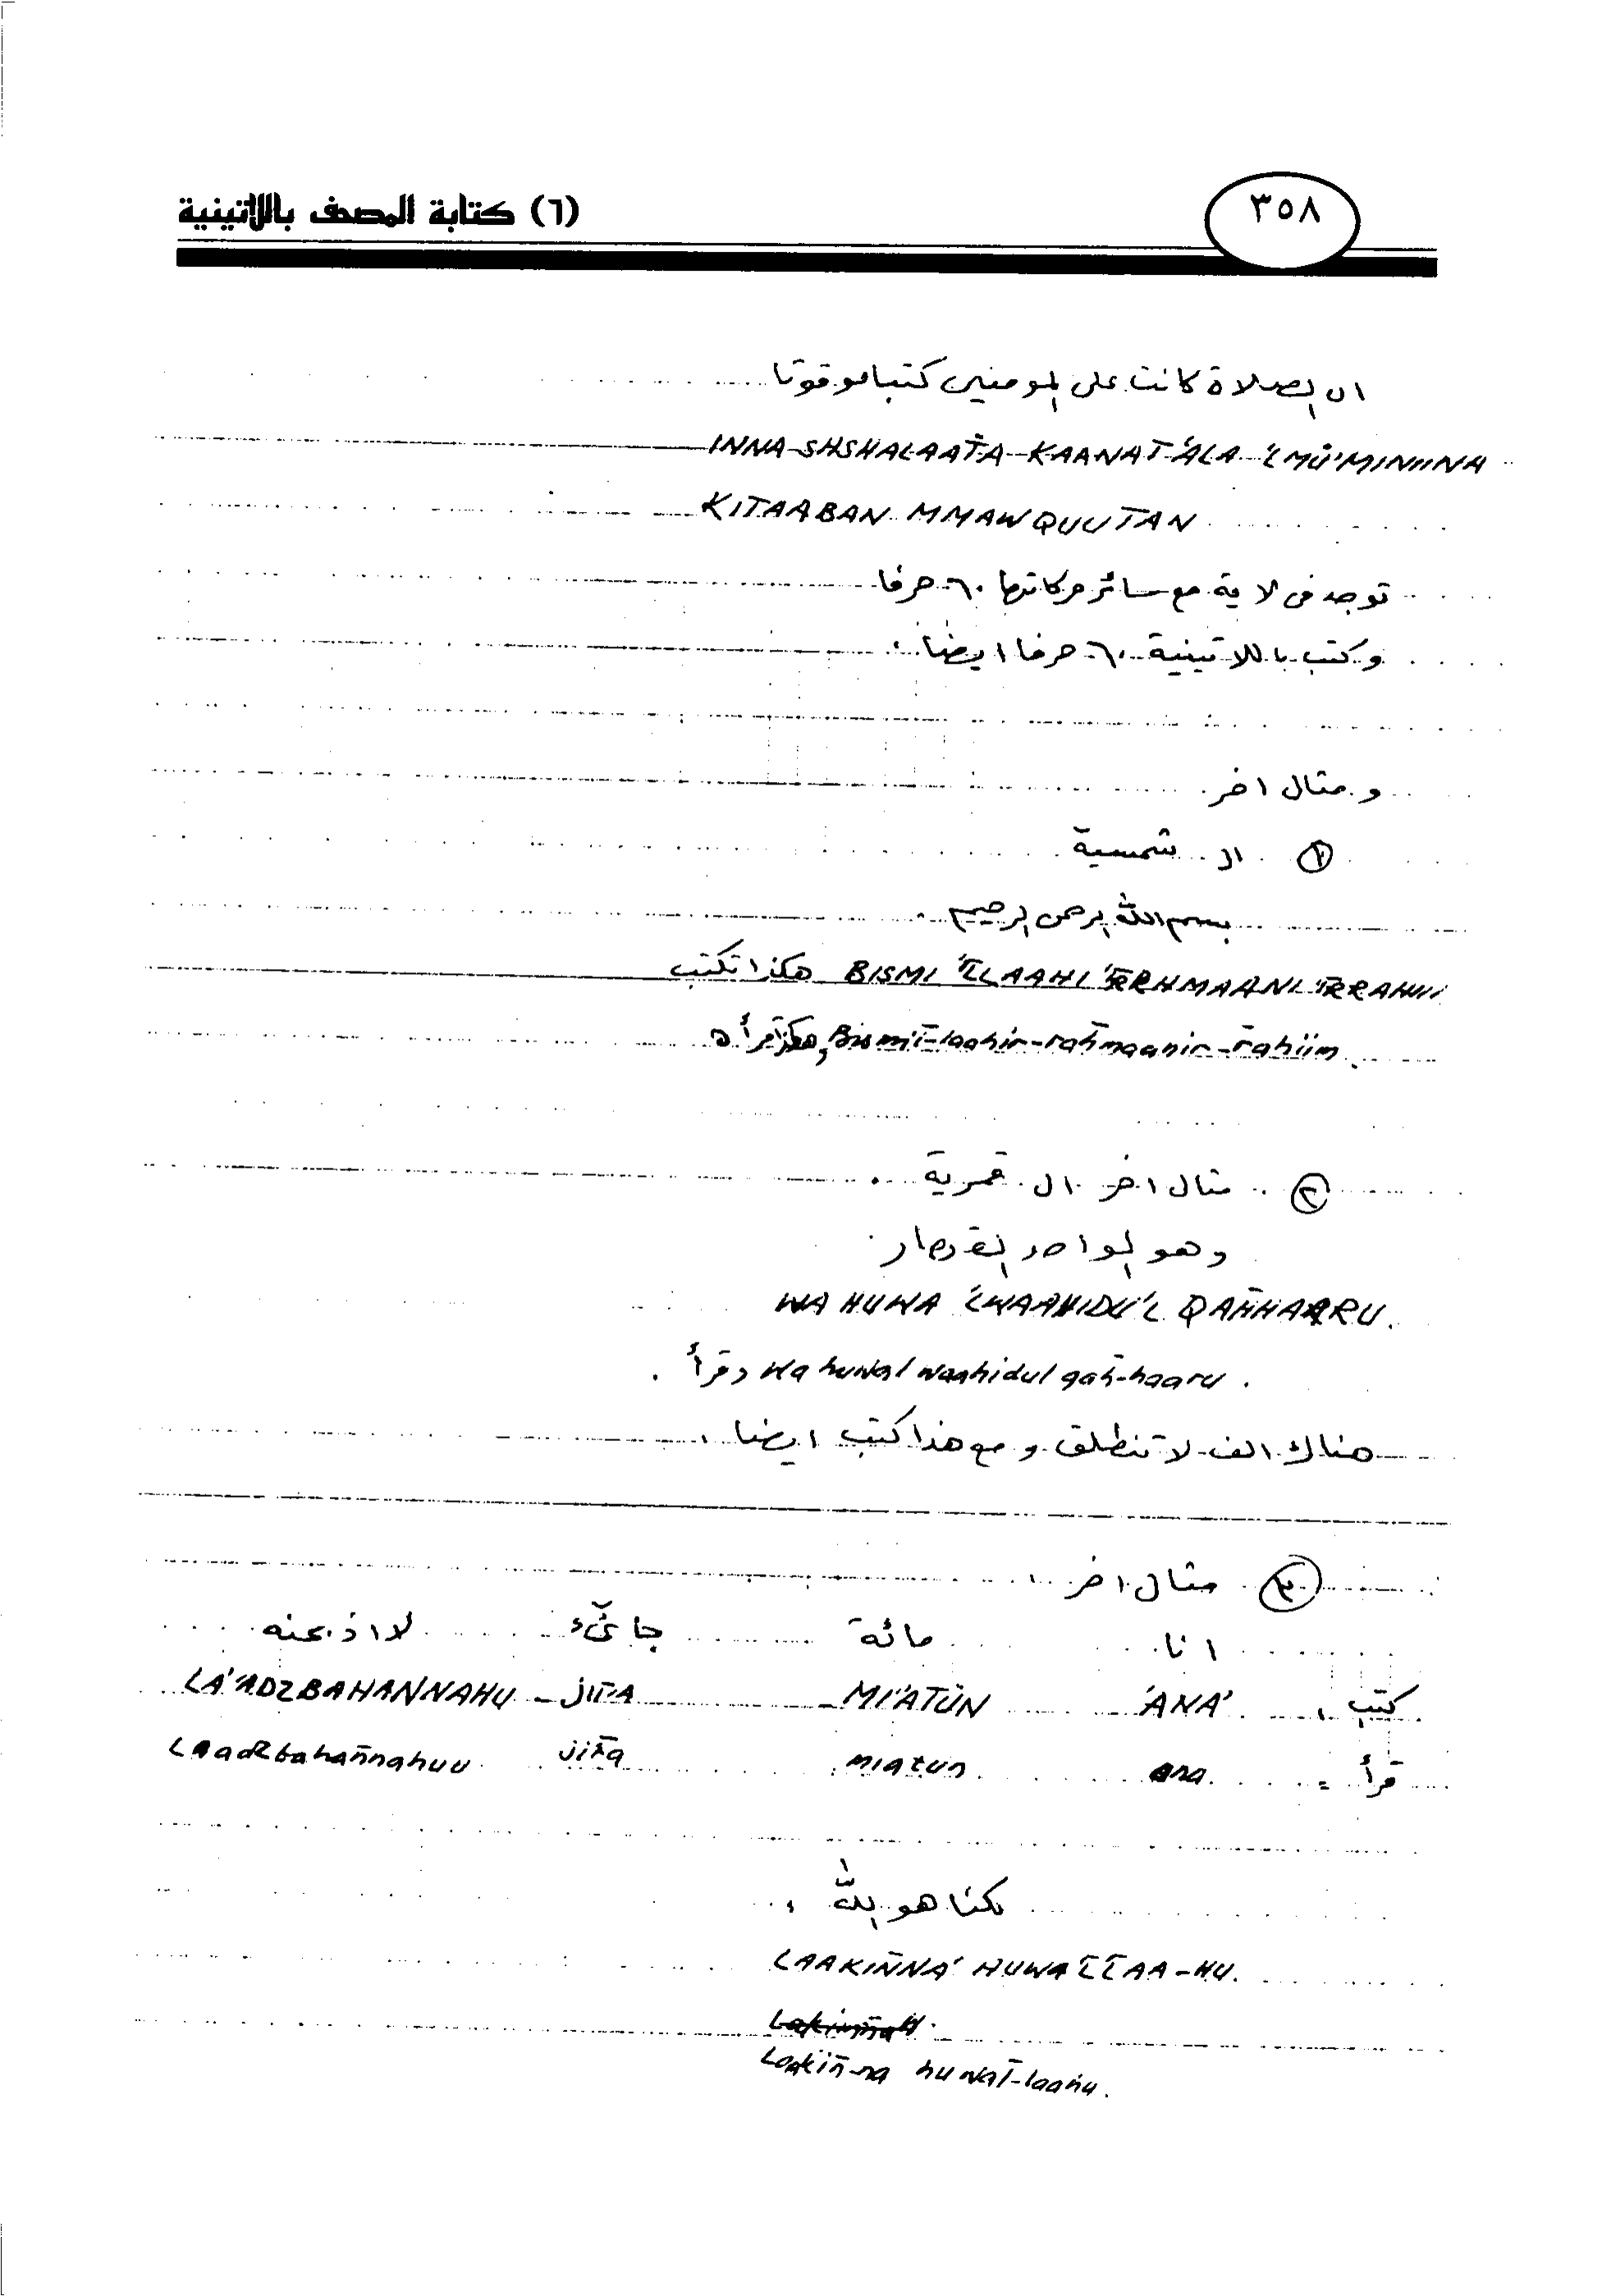 ٣٥٨
(٦) كتابة المصحف باللاتينية
ان الصلاة كانت على المومنين كتبا موقوتا
INNA-SHSHALAATA-KAANAT'ALA 'LMŪ'MINIINA
KITAABAN MMAWQUUTAN
توجد فى لاية مع سائر حركاتها ٦٠ حرفا
وكتب باللاتينية ٦٠ حرفا ايضا
و مثال اخر
١ ال شمسية
بسم الله الرحمن الرحيم
BISMI 'L̄LAAHI 'R̄RHMAANI 'R̄RAHII هكذا تكتب
Bismil̄-laahir-rahmaanir-r̄ahiim
٢ مثال اخر ال قمرية
وهو الواحد القهار
WA HUWA 'LWAAHIDU'L QAH̄HAARU.
wa huwal waahidul qah̄-haaru وقرأ .
هناك الف لا تنطلق و مع هذا كتب ايضا
٣ مثال اخر
انا مائة جائء لا اذبحنه
كتب 'ANA' MI'ATŪN JIỈA LA'ADZBAHANNAHU
قرأ = ana miatun jiỉa Laadzbahan̄nahuu
لكنا هو الله
LAAKIN̄NA' HUWA'L̄L̄AA-HU.
Laakin̄-na huwal̄-laahu.